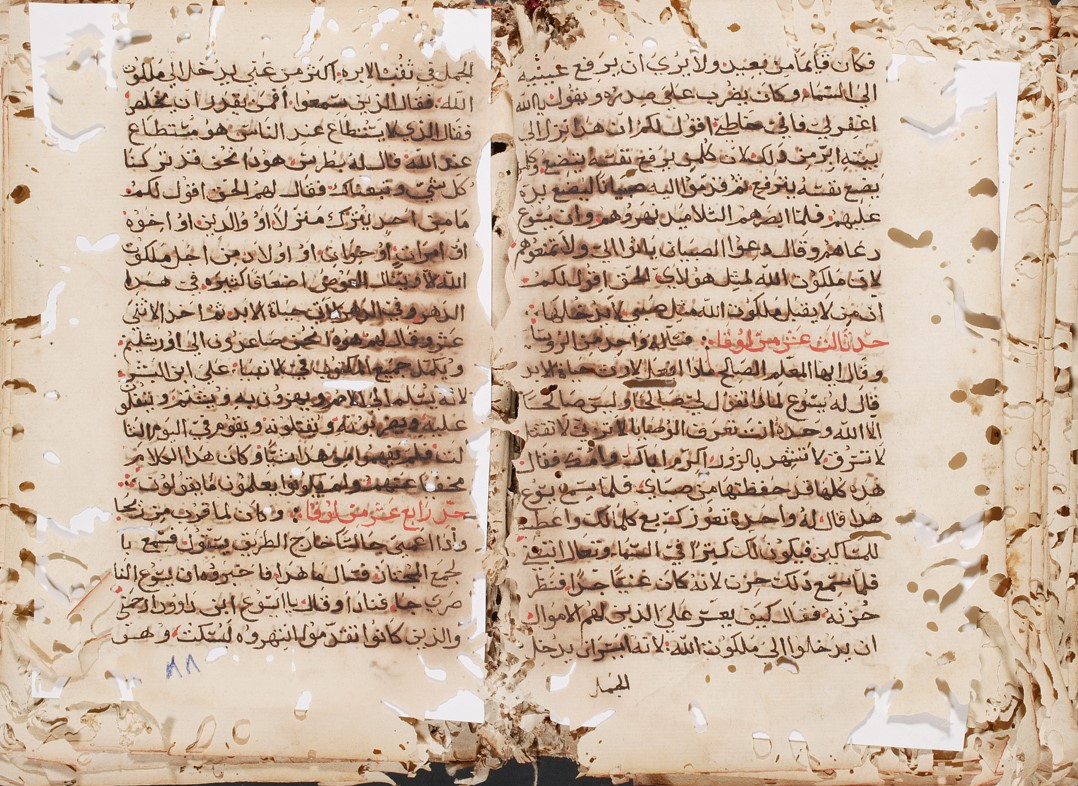 فكان قايما من بعيد ولا يرى ان يرفع عينيه
الى السما وكان يضرب على صدره ويقول يا الله
اغفر لي فاني خاطي اقول لكم ان هذا نزل الى
بيته ابر من ذلك لان كل من يرفع نفسه يتضع وكل
يضع نفسه يرتفع ثم قدموا اليه صبيانا ليضع يده
عليهم فلما ابصرهم التلاميذ نهروهم وان يسوع
دعاهم وقال دعوا الصبيان ياتوا الي ولا تمنعوهم
لان ملكوت الله لمثل هولاي الحق اقول لكم
ان من لا يقبل ملكوت الله مثل صبي لا يدخلها
حد ثالث عشر من لوقا سأله واحد من الروسا
وقال ايها المعلم الصالح ماذا افعل لارث حياة الابد
قال له يسوع لماذا تقول لي صالحا وليس صالحا
الا الله وحده انت تعرف الوصايا لا تزني لا تقتل
لا تسرق لا تشهد بالزور اكرم اباك وامك فقال
هذه كلها قد حفظتها من صباي فلما سمع يسوع
هذا قال له واحدة تعوزك بيع كل مالك واعطيه
للمساكين فيكون لك كنزا في السما وتعال اتبعني
فلما سمع ذلك حزن لانه كان غنيا جدا فنظر
حزنه فقال كيف يعسر على الذين لهم الاموال
ان يدخلوا الى ملكوت الله لانه ايسر ان يدخل
الجمل
الجمل في ثقب الابره اكثر من غني يدخل الى ملكوت
الله فقال الذين سمعوا افمن يقدر ان يخلص
فقال الذي لا يستطاع عند الناس هو مستطاع
عند الله قال له بطرس هوذا نحن قد تركنا
كل شي وتبعناك فقال لهم الحق اقول لكم
ما من احد يترك منزلا او والدين او اخوه
او امراة او اولاد من اجل ملكوت
الله الا وينال العوض اضعافا كثيره في هذا
الدهر وفي الدهر الاتي حياة الابد ثم اخذ الاثنى
عشر وقال لهم هوذا نحن صاعدون الى اورشليم
ويكمل جميع المكتوب في الانبيا على ابن البشر
لانه يسلم الى الامم ويهزون به ويشتم ويتفلو
عليه ويضربونه ويقتلونه ويقوم في اليوم الثا
لث ولم يفهموا من هذا شيا وكان هذا الكلام
مخفي عنهم ولم يكونوا يعلمون ما يقول
حد رابع عشر من لوقا وكان لما قرب من ريحا
واذا اعمى جالسا خارج الطريق فسمع با
لجمع المجتاز فقال ما هذا فاخبروه ان يسوع النا
صري جا فنادا وقال يا يسوع ابن داوود ارحمني
والذين كانوا تقدموا انتهروه ليسكت وهو
٨٨